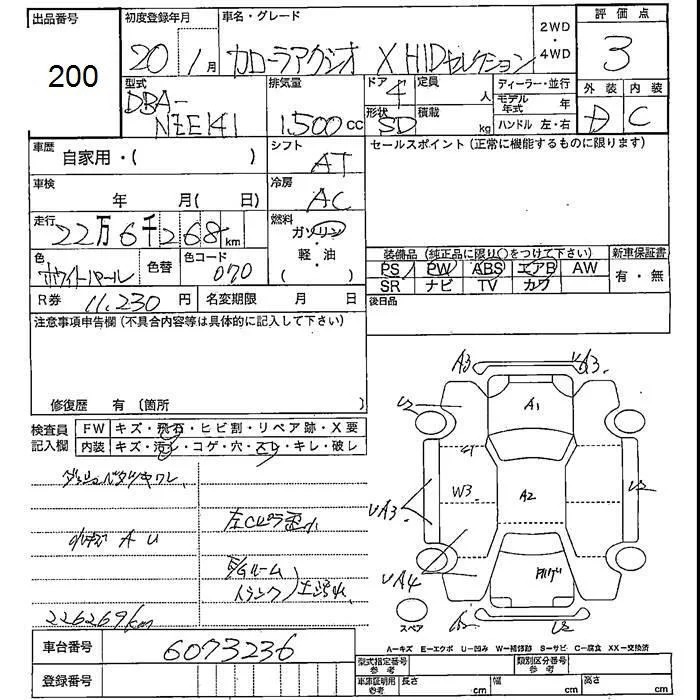 出品番号
200
初度登録年月
20年1月
車名・グレード
カローラアクシオ X HIDセレクション
2WD
・
4WD
評価点
3
型式
DBA-
NZE141
排気量
1,500cc
ドア 4
形状 SD
定員 人
積載 kg
ディーラー・並行
モデル年式 年
ハンドル 左・右
外装 内装
D C
車歴 自家用・( )
シフト AT
セールスポイント (正常に機能するものに限ります)
車検 年 月( 日)
冷房 AC
走行 22万6千268km
燃料
ガソリン
・
軽・油
( )
色 ホワイトパール
色替
色コード 070
装備品 (純正品に限り○をつけて下さい)
PS PW ABS エアB AW
SR ナビ TV カワ
新車保証書
有・無
R券 11,230円
名変期限 月 日
後日品
注意事項申告欄 (不具合内容等は具体的に記入して下さい)
修復歴 有 〔箇所 〕
検査員
記入欄
FW キズ・飛石・ヒビ割・リペア跡・X要
内装 キズ・汚レ・コゲ・穴・スレ・キレ・破レ
A U
226269km
A3
A3
U2
A1
W3
A2
UA3
U2
UA4
U2
スペア
A-キズ E-エクボ U-凹み W-補修跡 S-サビ C-腐食 XX-交換済
車台番号 6073236
登録番号
型式指定番号
参考
類別区分番号
参考
車庫証明用
参考
長さ cm
幅 cm
高さ cm